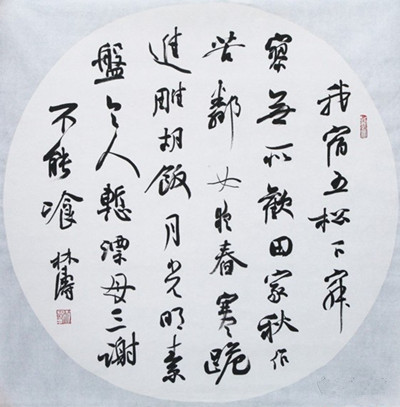 我宿五松下寂
寥無所歡田家秋作
苦鄰女夜舂寒跪
進雕胡飯月光明素
盤令人慙漂母三謝
不能飡
林濤